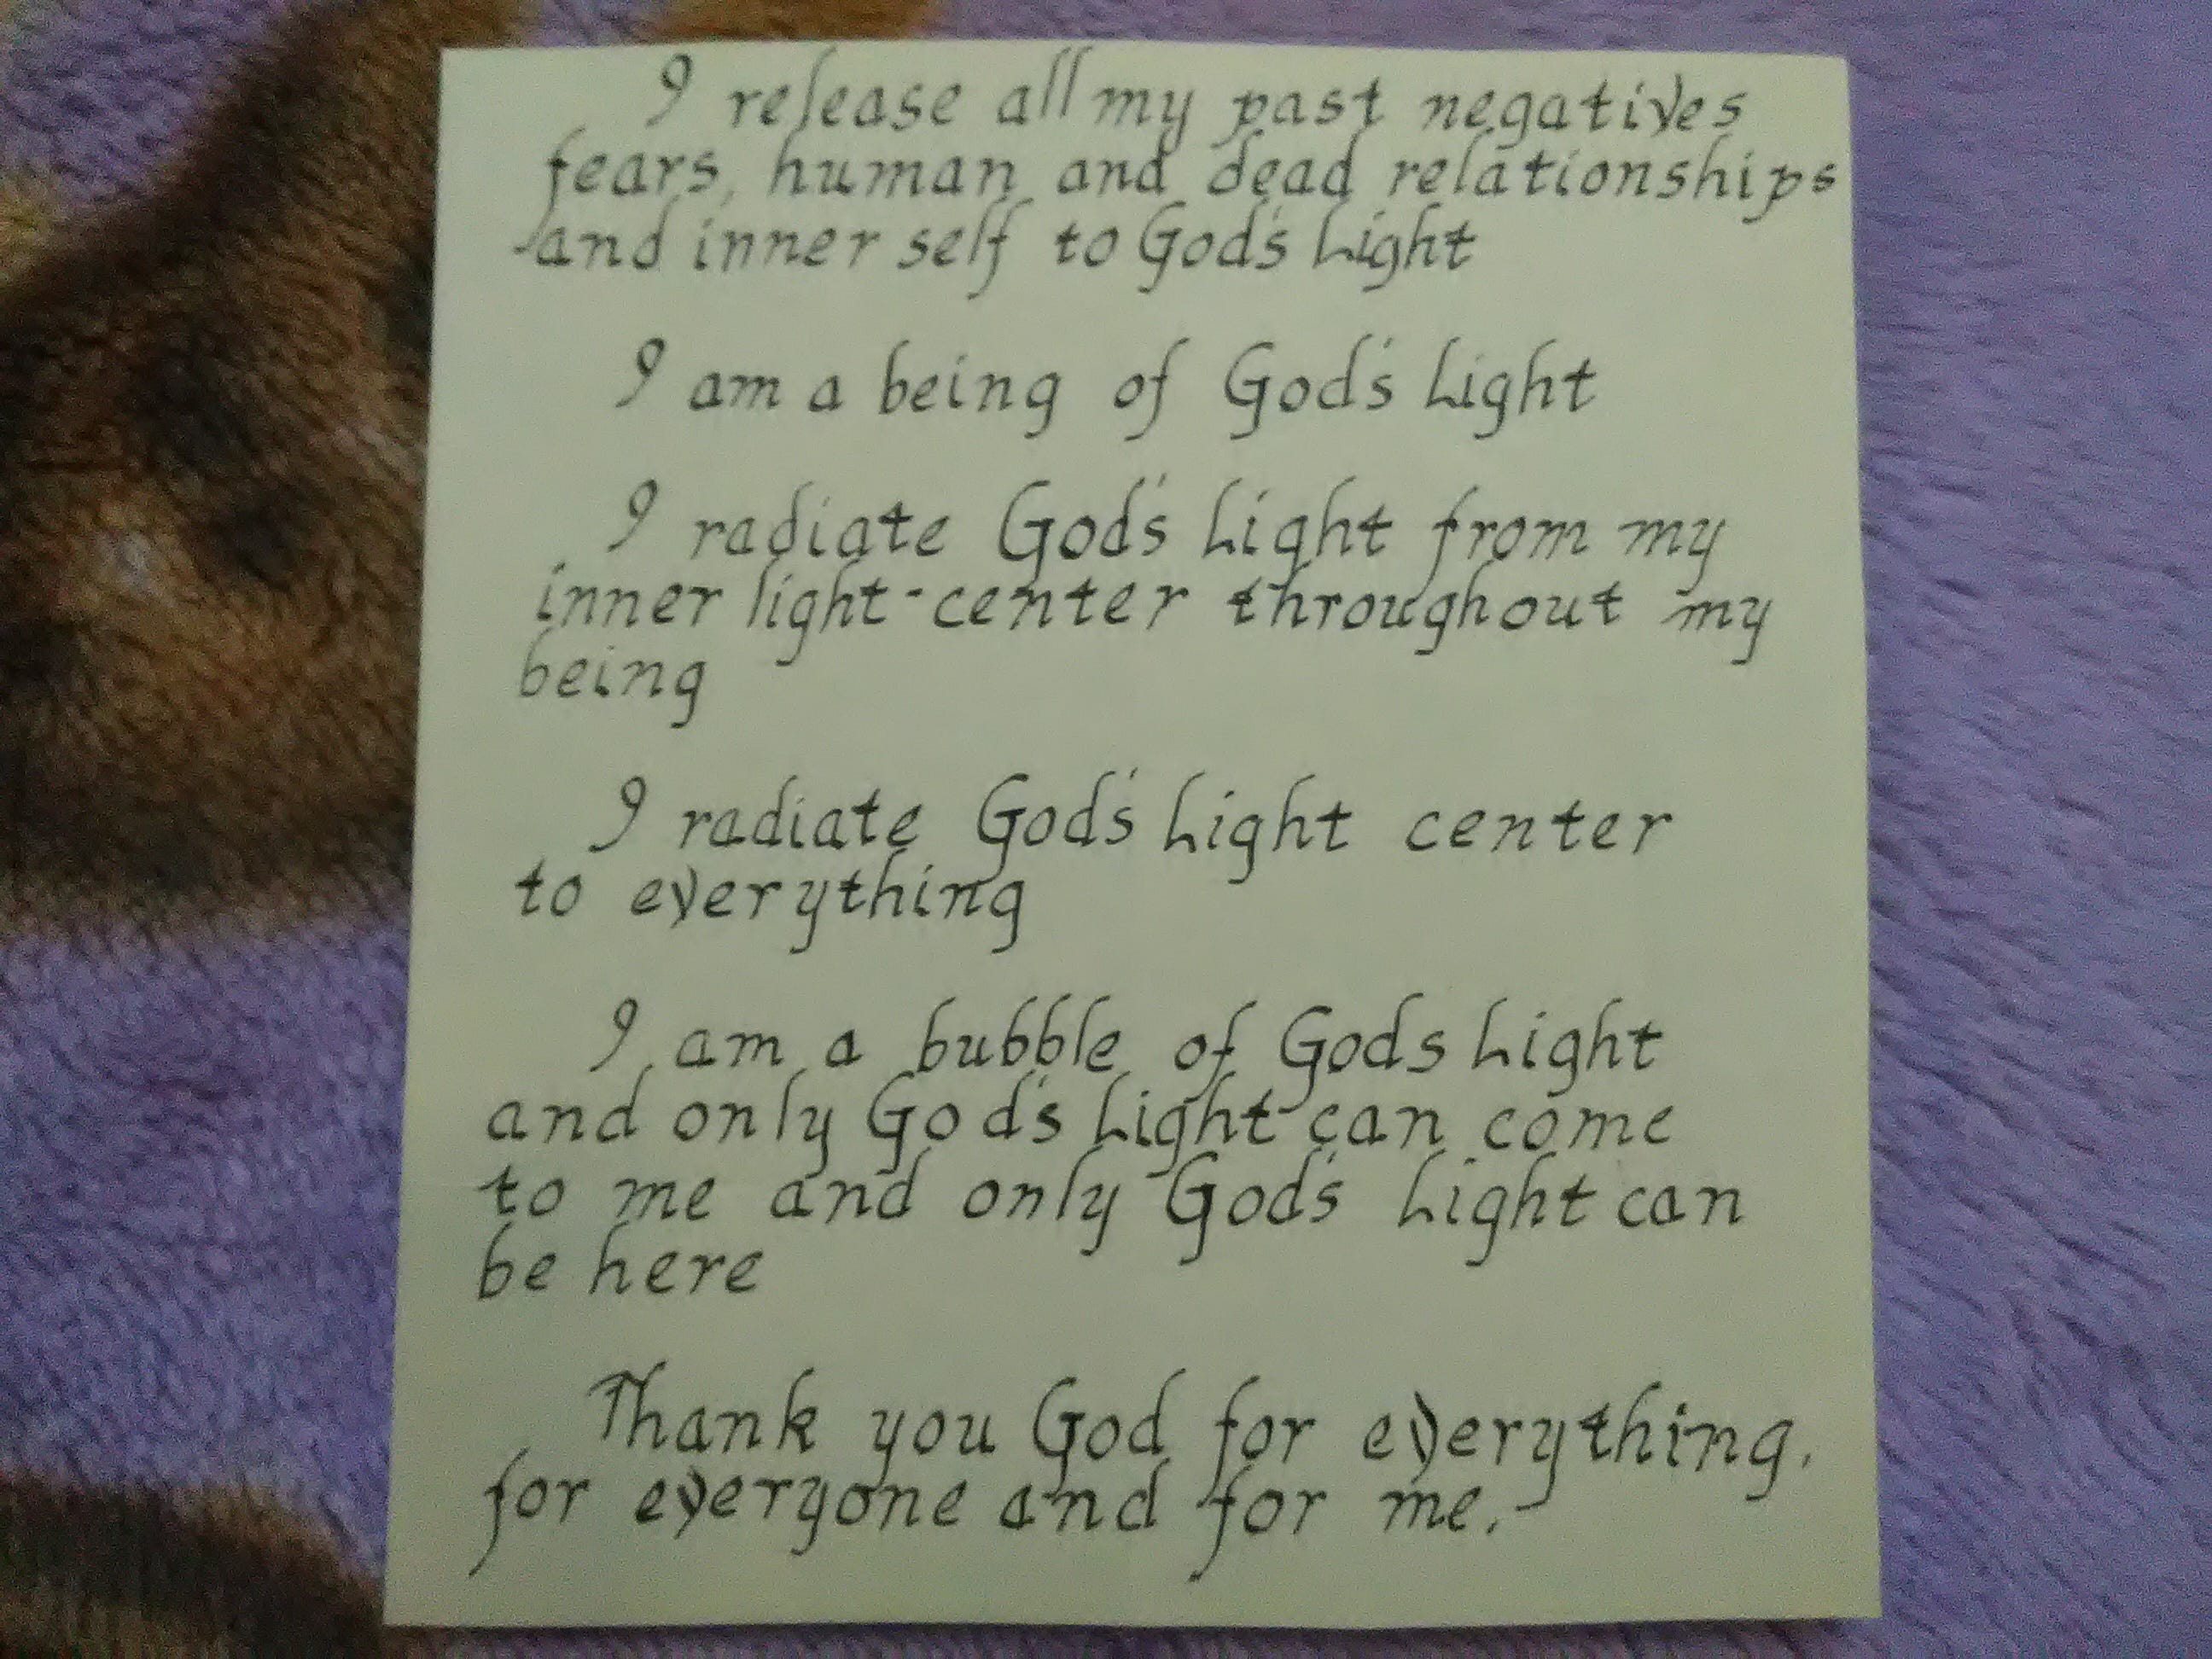 I release all my past negatives
fears, human and dead relationships
and inner self to God's Light
I am a being of God's Light
I radiate God's Light from my
inner light-center throughout my
being
I radiate God's Light center
to everything
I am a bubble of Gods Light
and only God's Light can come
to me and only God's Light can
be here
Thank you God for everything,
for everyone and for me.